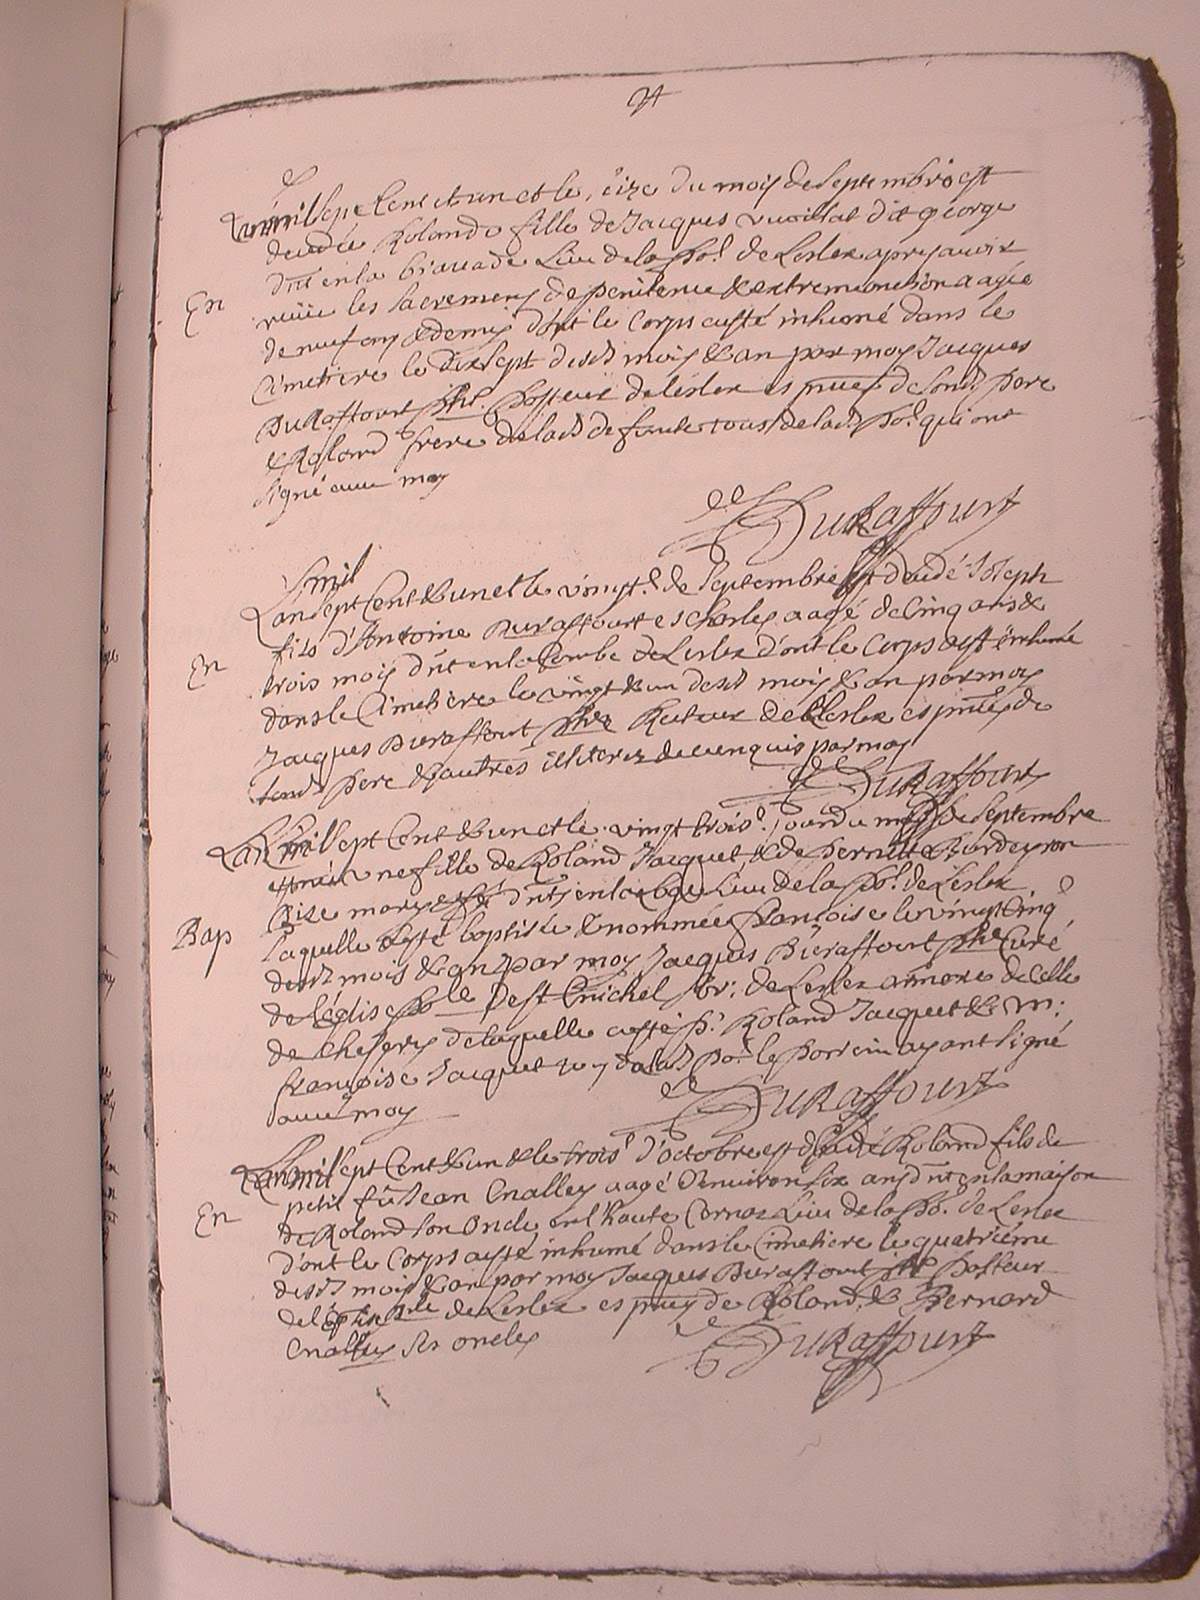 Lan mil sept Cent et un et le seize du mois de Septembre est
decedée Rolande fille de Jacques dit george
dnt en la lieu de la po. de Lelex apres avoir
En
receu les Sacremens de penitence & extremeonction aagée
de neuf ans & demis d'ont le Corps a esté inhumé dans le
Cimetiere le dixsept desd mois & an par moy Jacques
Duraffourt pbre. pasteur de Lelex es pntes de Sond pere
& Roland frere de lad defunte tous de lad po. qui ont
Signé avec moy
Duraffourt
mil
Lan Sept Cent & un et le vingt. de Septembre est decedé Joseph
fils d'Antoine Duraffourt es Charles aagé de Cinq ans &
En
trois mois dnt en la Combe de Lelex d'ont le Corps a esté inhumé
dans le Cimetiere le vingt & un desd mois & an par moy
Jacques Duraffourt pbre Recteur de Lelex es pntes de
Sond pere & autres illiterez de ce enquis par moy
Duraffourt
Lan mil Sept Cent & un et le vingt trois. jour du mois de Septembre
une fille de Roland Jacquet & de Pernette
mariés dnts en lieu de la po. de Lelex
Bap
laquelle a esté baptisée & nommée françoise le vingt Cinq
desd mois & an par moy Jacques Duraffourt pbre Curé
de leglise St Michel de Lelex annexe de Celle
de Chesery de laquelle a esté p. Roland Jacquet & m:
françoise Jacquet de lad po. le parrein ayant Signé
avec moy
Duraffourt
Lan mil Sept Cent & un & le trois. d'octobre est decedé Roland fils de
petit fû Jean aagé d'environ Six ans dnt en la maison
En
de Roland Son Oncle en l'haute lieu de la po. de Lelex
d'ont le Corps a esté inhumé dans le Cimetiere le quatrième
desd mois & an par moy Jacques Duraffourt pbre pasteur
de l'église de Lelex es pntes de Roland & Bernard
ses oncles
Duraffourt